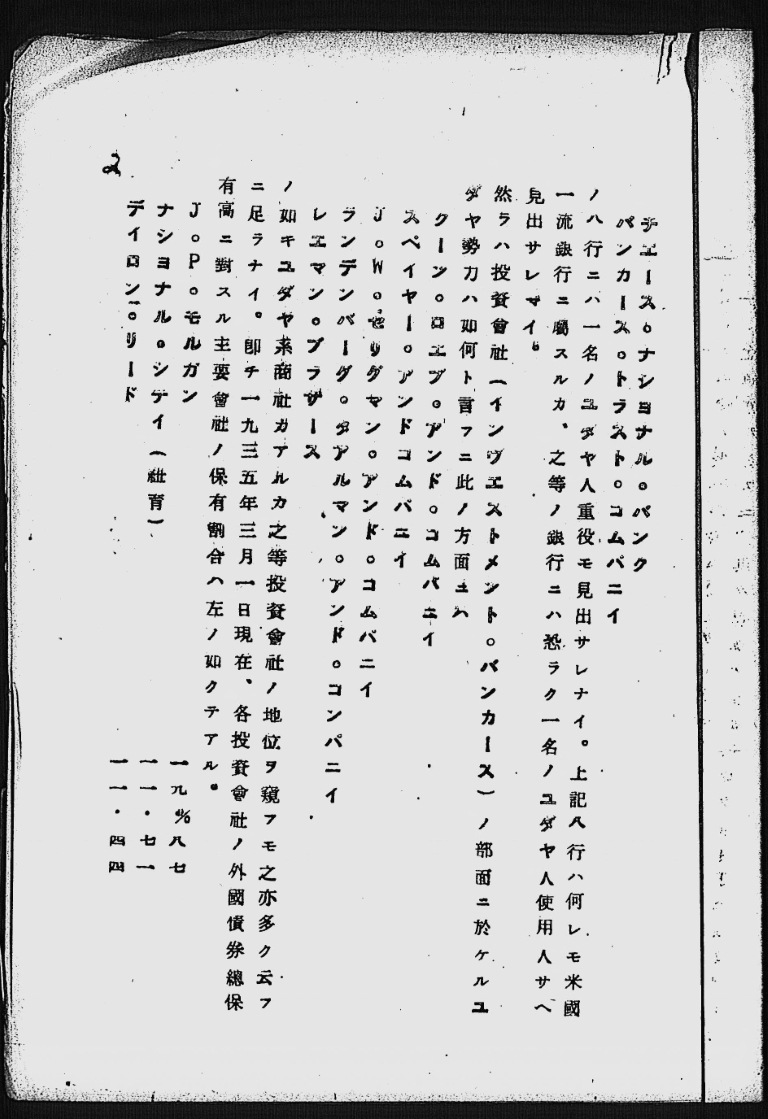 チエース。ナシヨナル。バンク
バンカース。トラスト。コムパニイ
ノ八行ニハ一名ノユダヤ人重役モ見出サレナイ。上記八行ハ何レモ米國
一流銀行ニ屬スルカ、之等ノ銀行ニハ恐ラク一名ノユダヤ人使用人サヘ
見出サレマイ。
然ラハ投資會社(インヴエストメント。バンカース)ノ部面ニ於ケルユ
ダヤ勢力ハ如何ト言フニ此ノ方面ニハ
クーン。ロエブ。アンド。コムパニイ
スペイヤー。アンドコムパニイ
J。W。セリグマン。アンド。コムパニイ
ランデンバーグ。タアルマン。アンド。コンパニイ
レエマン。ブラザース
ノ如キユダヤ系商社カアルカ之等投資會社ノ地位ヲ窺フモ之亦多ク云フ
ニ足ラナイ。卽チ一九三五年三月一日現在、各投資會社ノ外國債券總保
有高ニ對スル主要會社ノ保有割合ハ左ノ如クテアル。
J。P。モルガン 一九%八七
ナシヨナル。シテイ(紐育) 一一・七一
デイロン。リード 一一・四四
2